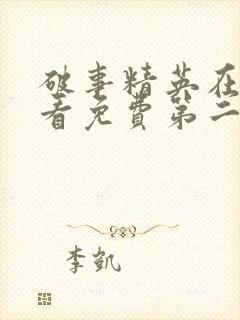 破事精英在
看免费第二
李凯